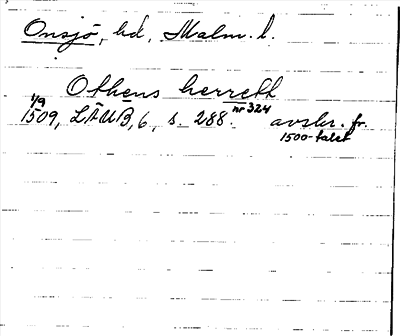 Onsjö, hd, Malm. l.
Othens herrett
1/9 nr 324
1509, LÄUB, 6, s. 288. avskr. fr.
1500-talet